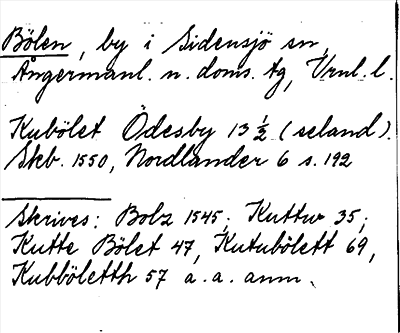 Bölen, by i Sidensjö sn,
Ångermanl. n. doms. tg, Vrnl. l.
Kubölet Ödesby 13 ½ (seland).
Skb. 1550, Nordlander 6 s. 192
Skrives: Bolz 1545; Kuttuv 35;
Kutte Bölet 47, Kutubölett 69,
Kubböletth 57 a. a. anm.